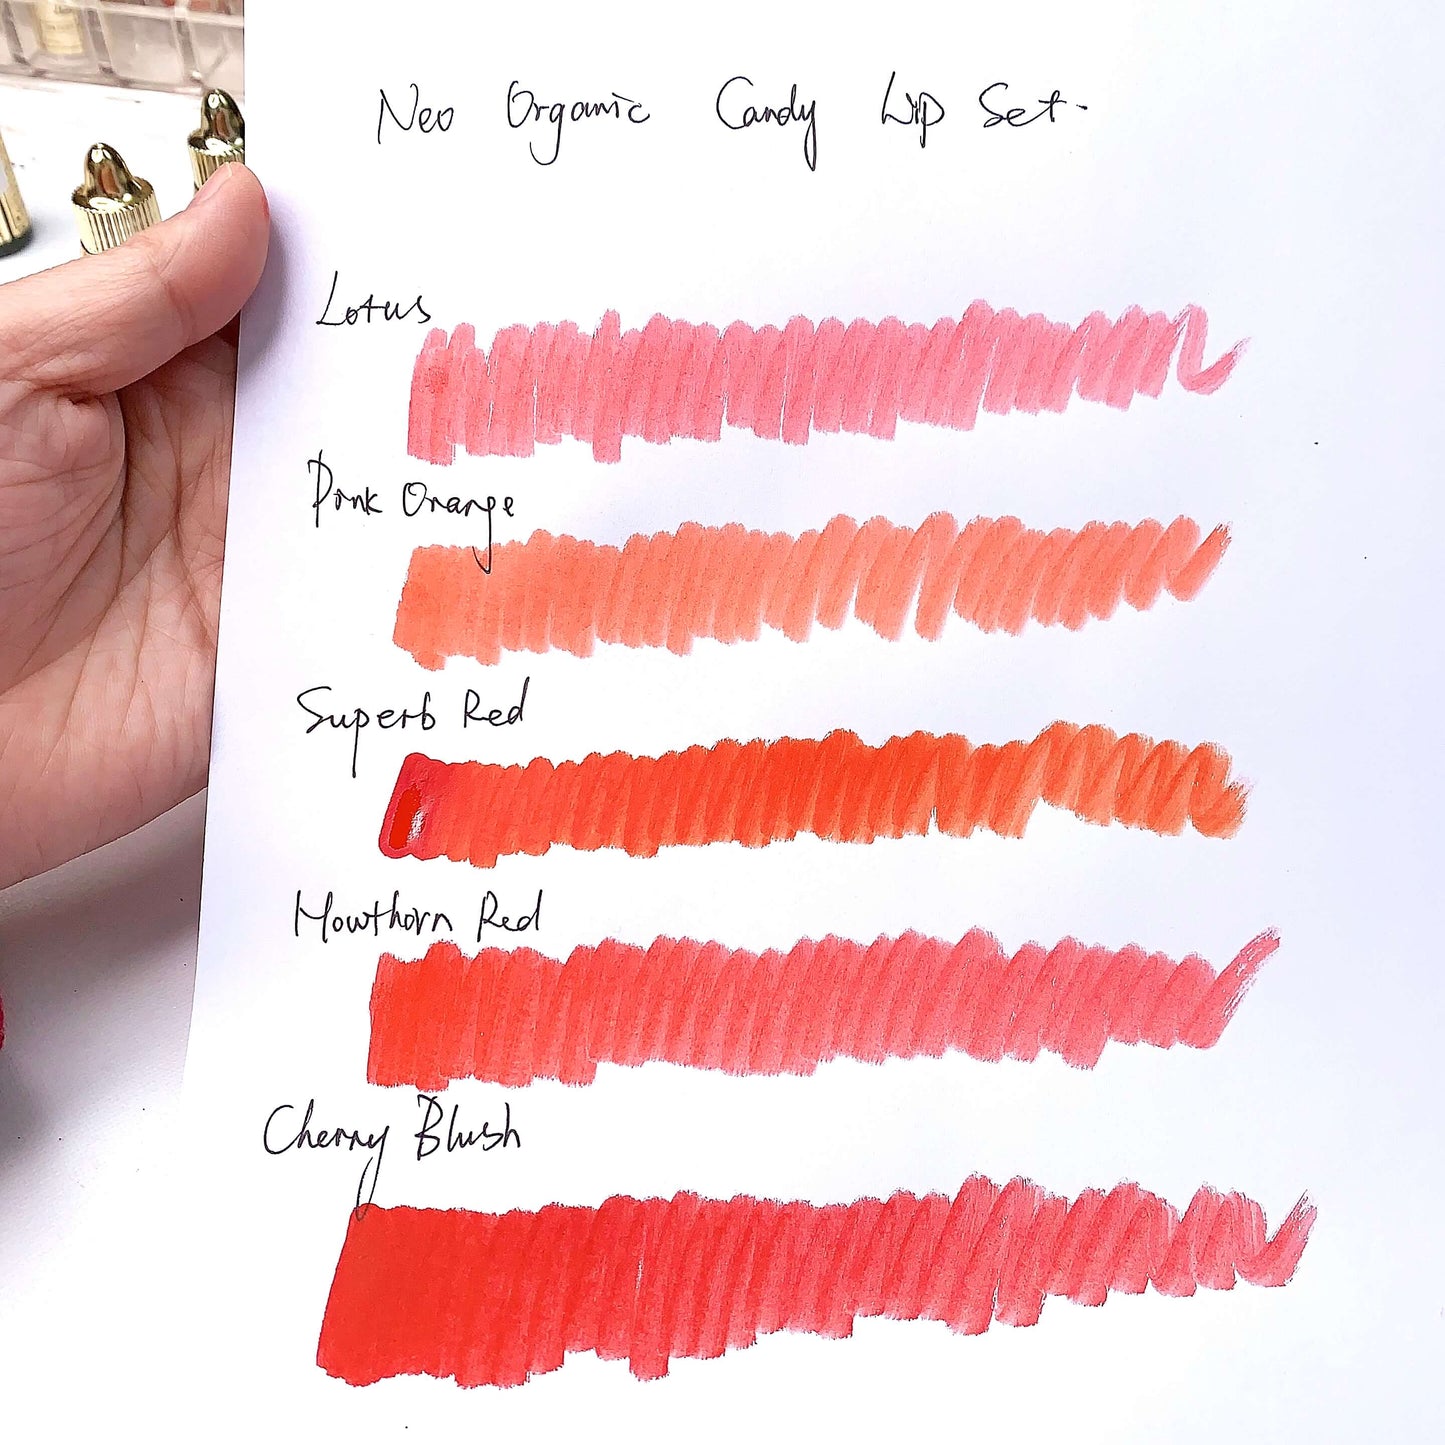 Neo Organic Candy Lip Set.
Lotus
Pink Orange
Superb Red
Howthorn Red
Cherry Blush